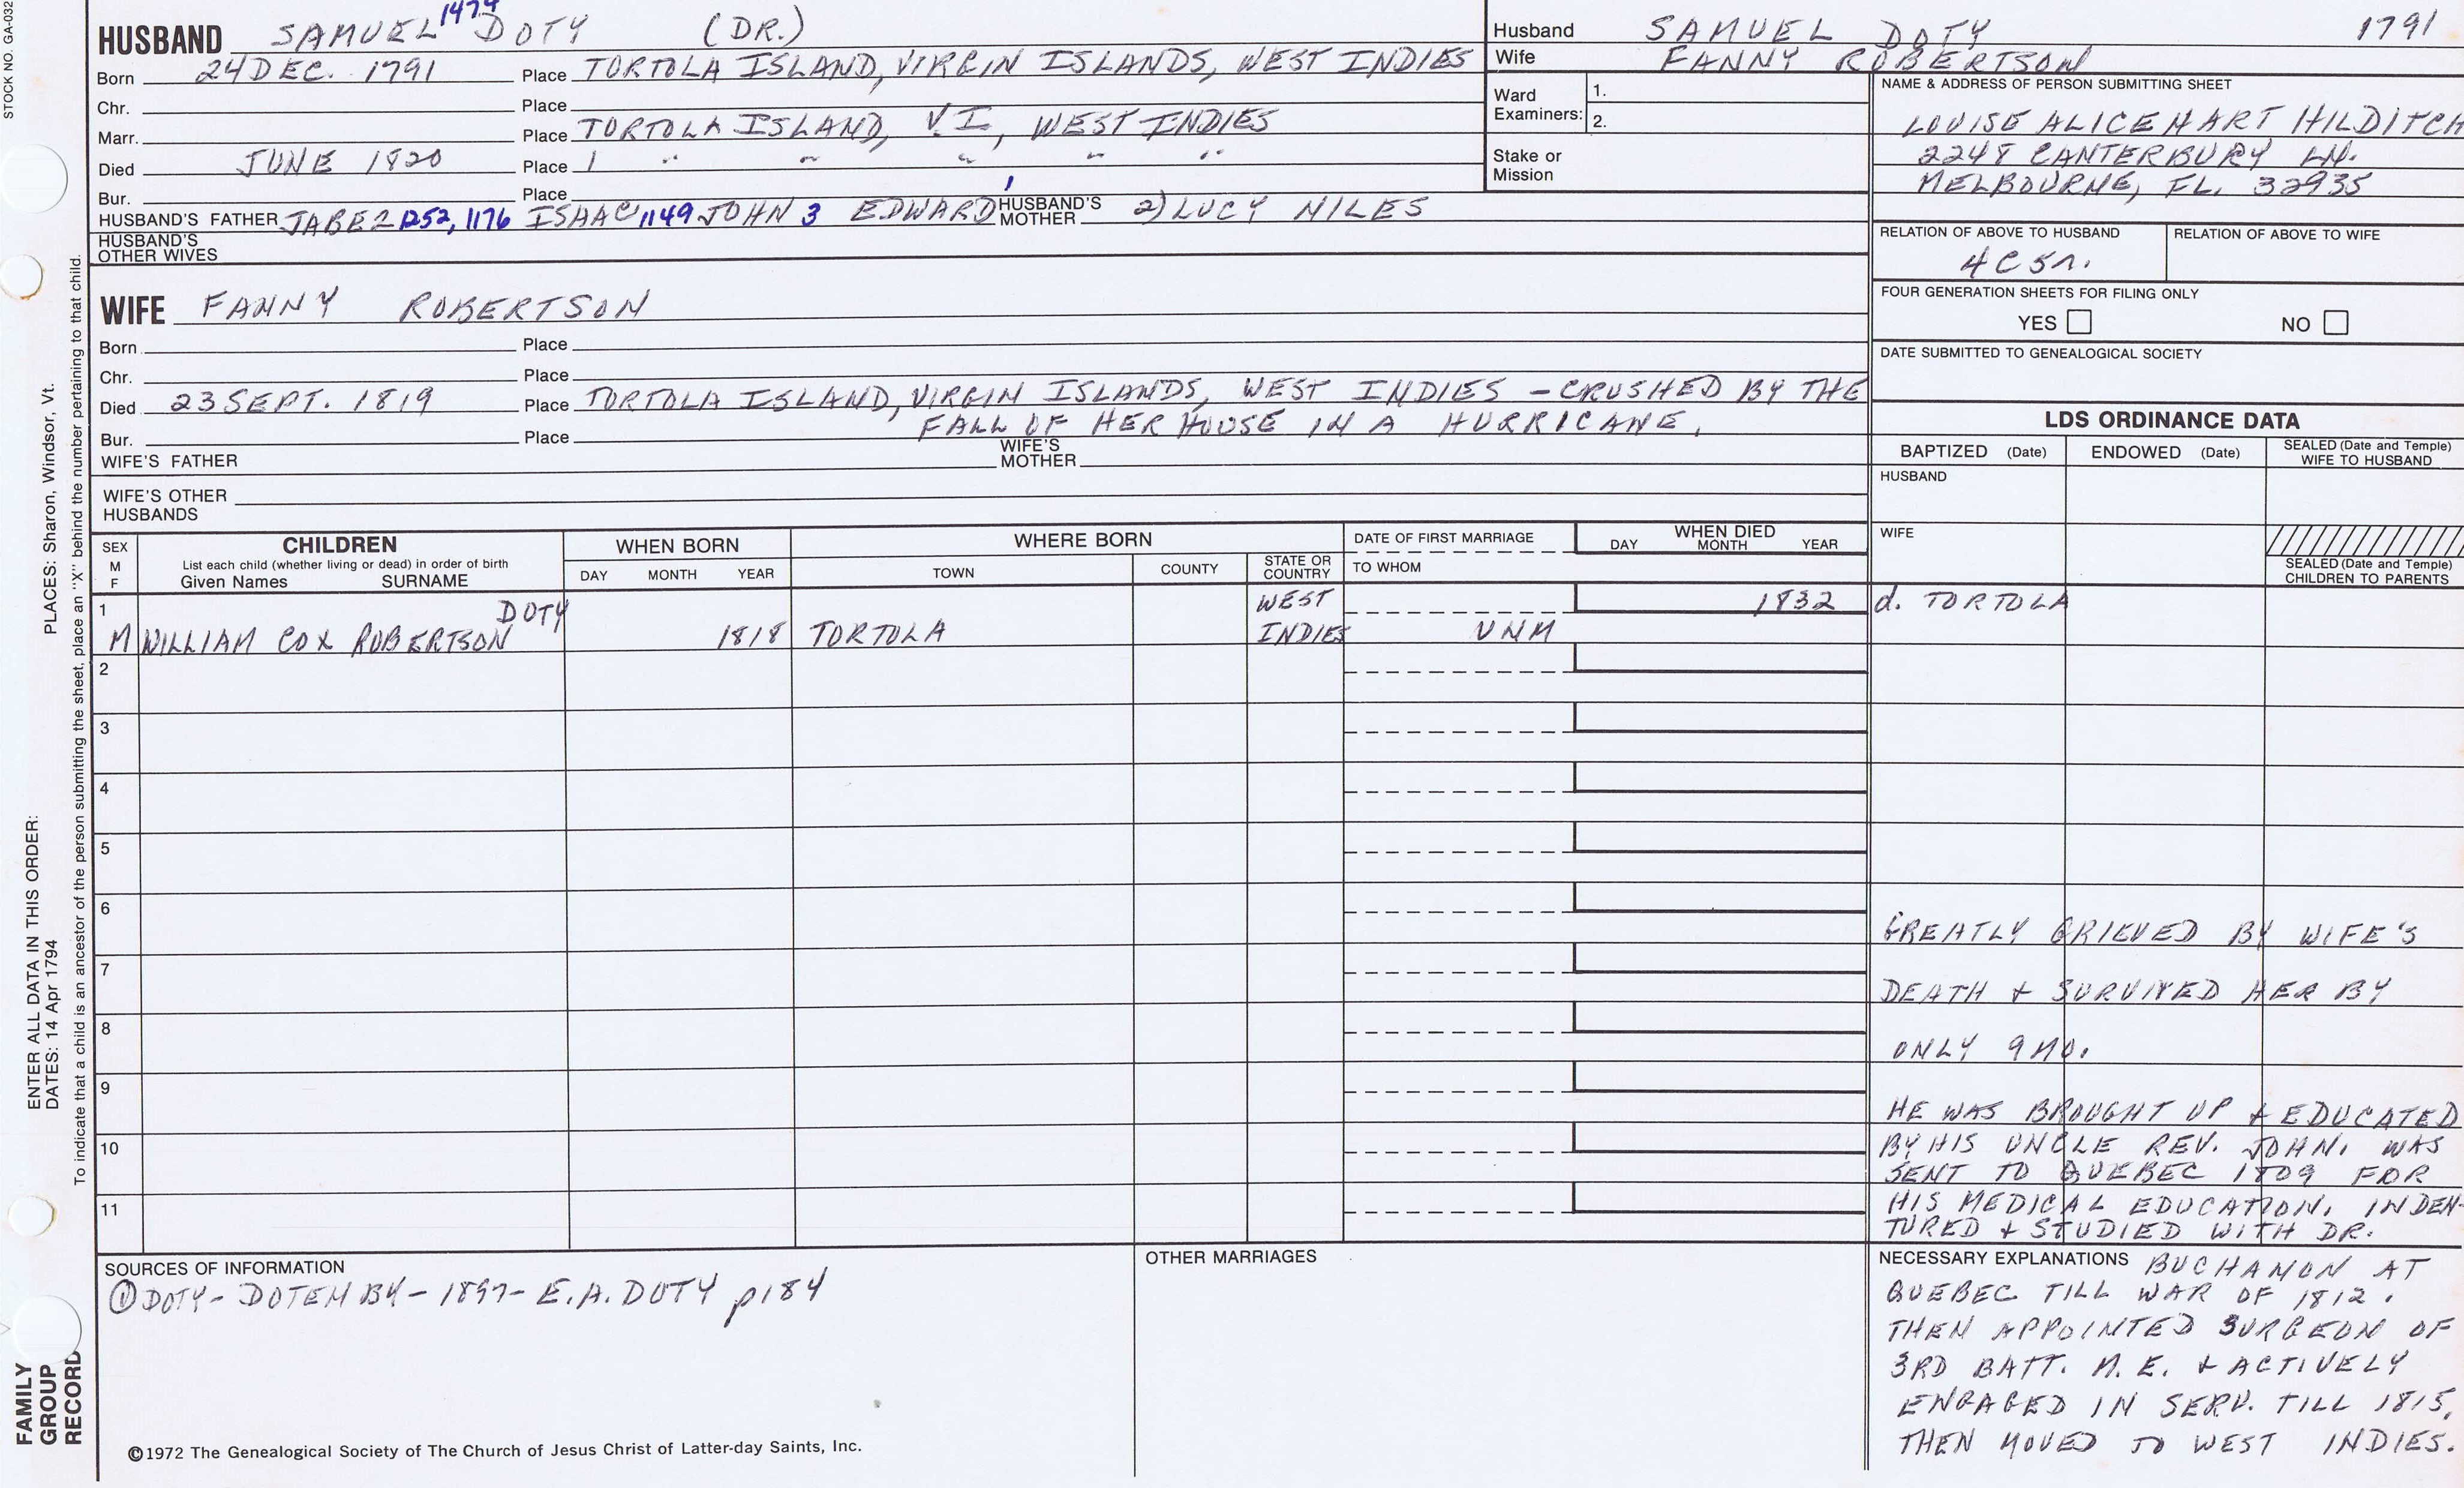 STOCK NO. GA-032
PLACES: Sharon, Windsor, Vt.
ENTER ALL DATA IN THIS ORDER:
DATES: 14 Apr 1794
To indicate that a child is an ancestor of the person submitting the sheet, place an "X" behind the number pertaining to that child.
FAMILY
GROUP
RECORD
1474
HUSBAND SAMUEL DOTY (DR.)
Born 24 DEC. 1791 Place TORTOLA ISLAND, VIRGIN ISLANDS, WEST INDIES
Chr. Place
Marr. Place TORTOLA ISLAND, V.I., WEST INDIES
Died JUNE 1820 Place " " " " "
Bur. Place
HUSBAND'S FATHER JABEZ 1252, 1176 ISAAC 1149 JOHN 3 EDWARD 1 HUSBAND'S MOTHER 2) LUCY NILES
HUSBAND'S
OTHER WIVES
WIFE FANNY ROBERTSON
Born Place
Chr. Place
Died 23 SEPT. 1819 Place TORTOLA ISLAND, VIRGIN ISLANDS, WEST INDIES - CRUSHED BY THE
Bur. Place FALL OF HER HOUSE IN A HURRICANE.
WIFE'S FATHER WIFE'S MOTHER
WIFE'S OTHER
HUSBANDS
Husband SAMUEL DOTY 1791
Wife FANNY ROBERTSON
Ward
Examiners: 1.
2.
Stake or
Mission
NAME & ADDRESS OF PERSON SUBMITTING SHEET
LOUISE ALICE HART HILDITCH
2248 CANTERBURY LN.
MELBOURNE, FL. 32935
RELATION OF ABOVE TO HUSBAND RELATION OF ABOVE TO WIFE
4C5r.
FOUR GENERATION SHEETS FOR FILING ONLY
YES NO
DATE SUBMITTED TO GENEALOGICAL SOCIETY
LDS ORDINANCE DATA
BAPTIZED (Date) ENDOWED (Date) SEALED (Date and Temple)
WIFE TO HUSBAND
HUSBAND
WIFE
SEALED (Date and Temple)
CHILDREN TO PARENTS
SEX
M
F
CHILDREN
List each child (whether living or dead) in order of birth
Given Names SURNAME
WHEN BORN
DAY MONTH YEAR
WHERE BORN
TOWN COUNTY STATE OR
COUNTRY
DATE OF FIRST MARRIAGE
TO WHOM
WHEN DIED
DAY MONTH YEAR
1 DOTY WEST 1832 d. TORTOLA
M WILLIAM COX ROBERTSON 1818 TORTOLA INDIES UNM
2
3
4
5
6
7
8
9
10
11
GREATLY GRIEVED BY WIFE'S
DEATH & SURVIVED HER BY
ONLY 9 MO.
HE WAS BROUGHT UP & EDUCATED
BY HIS UNCLE REV. JOHN. WAS
SENT TO QUEBEC 1809 FOR
HIS MEDICAL EDUCATION. INDEN-
TURED & STUDIED WITH DR.
NECESSARY EXPLANATIONS BUCHANON AT
QUEBEC TILL WAR OF 1812.
THEN APPOINTED SURGEON OF
3RD BATT. M.E. & ACTIVELY
ENGAGED IN SERV. TILL 1815,
THEN MOVED TO WEST INDIES.
SOURCES OF INFORMATION
① DOTY-DOTEN BY-1897-E.A. DOTY p184
OTHER MARRIAGES
©1972 The Genealogical Society of The Church of Jesus Christ of Latter-day Saints, Inc.